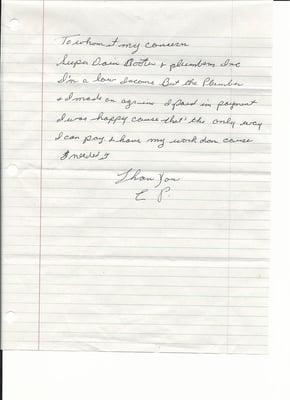 To whom it my concern
Super Drain Rooter & plumbers Inc
I'm a low Income But the Plumber
& I made an agreem I paid in payment
I was happy cause that's the only way
I can pay & have my work don cause
I needed it
Than You
E P.